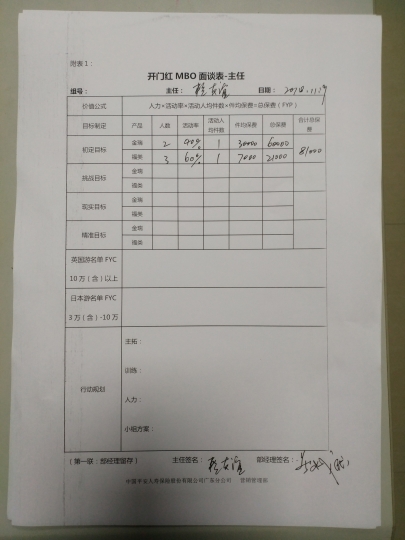 附表1：
开门红 MBO 面谈表-主任
组号： 主任： 日期：
价值公式 人力×活动率×活动人均件数×件均保费=总保费（FYP）
目标制定 产品 人数 活动率 活动人均件数 件均保费 总保费 合计总保费
初定目标 金瑞 2 90% 1 30000 60000 81000
福类 3 60% 1 7000 21000
挑战目标 金瑞
福类
现实目标 金瑞
福类
精准目标 金瑞
福类
英国游名单 FYC
10 万（含）以上
日本游名单 FYC
3 万（含）-10 万
行动规划 主拓：
训练：
人力：
小组方案：
（第一联：部经理留存） 主任签名： 部经理签名：
中国平安人寿保险股份有限公司广东分公司 营销管理部